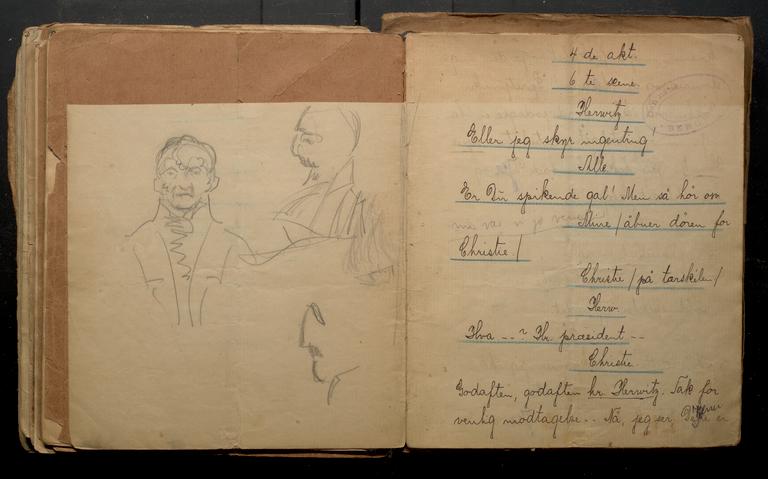 4 de akt.
6 te scene.
Herwitz.
Eller jeg skyr ingenting!
Alle.
Er Du spikende gal! Men så hør om
Mure / åbner døren for
Christie /
Christie / på tærskelen /
Herw.
Hva --? Hr. præsident --
Christie.
Godaften, godaften hr. Herwitz. Tak for
venlig modtagelse.. Nå, jeg ser, er